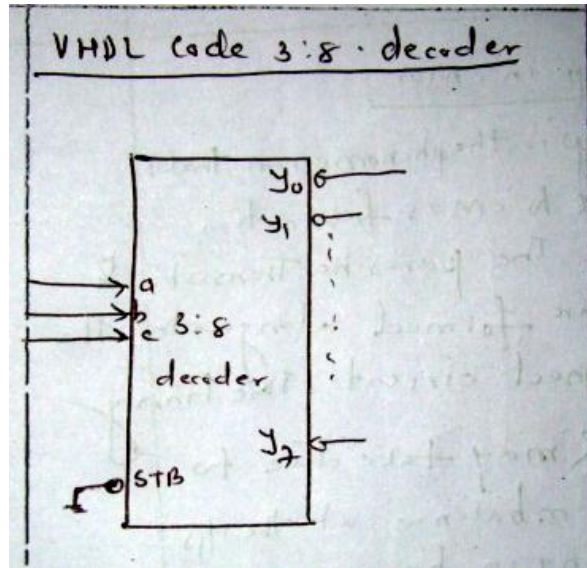 VHDL Code 3:8 decoder
y0
y1
a
b
c
3:8
decoder
y7
STB